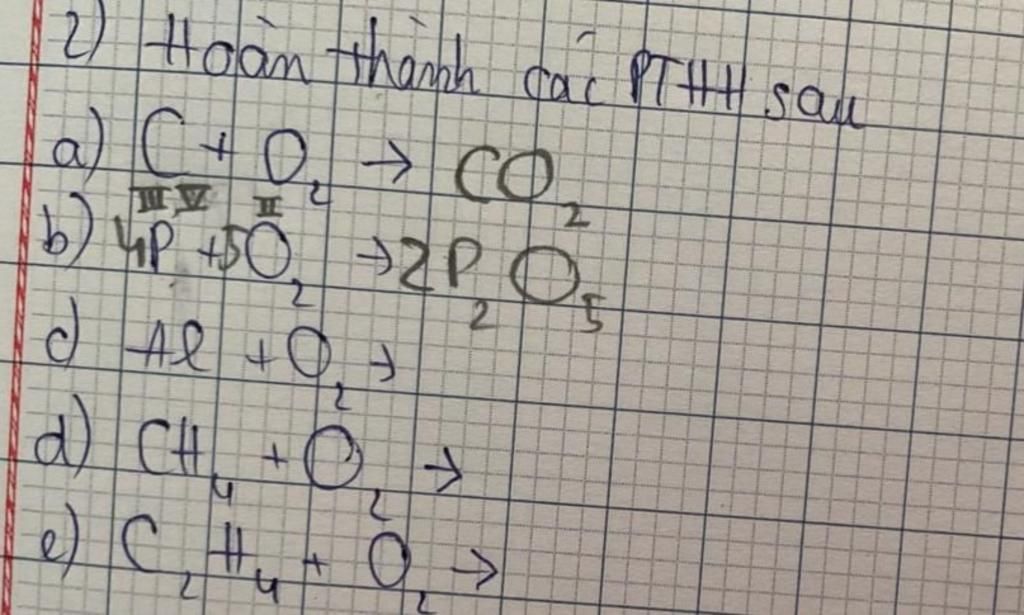 2) Hoàn thành các PTHH sau
a) C + O₂ → CO₂
III V II
b) 4P + 5O₂ → 2P₂O₅
c) Al + O₂ →
d) CH₄ + O₂ →
e) C₂H₄ + O₂ →